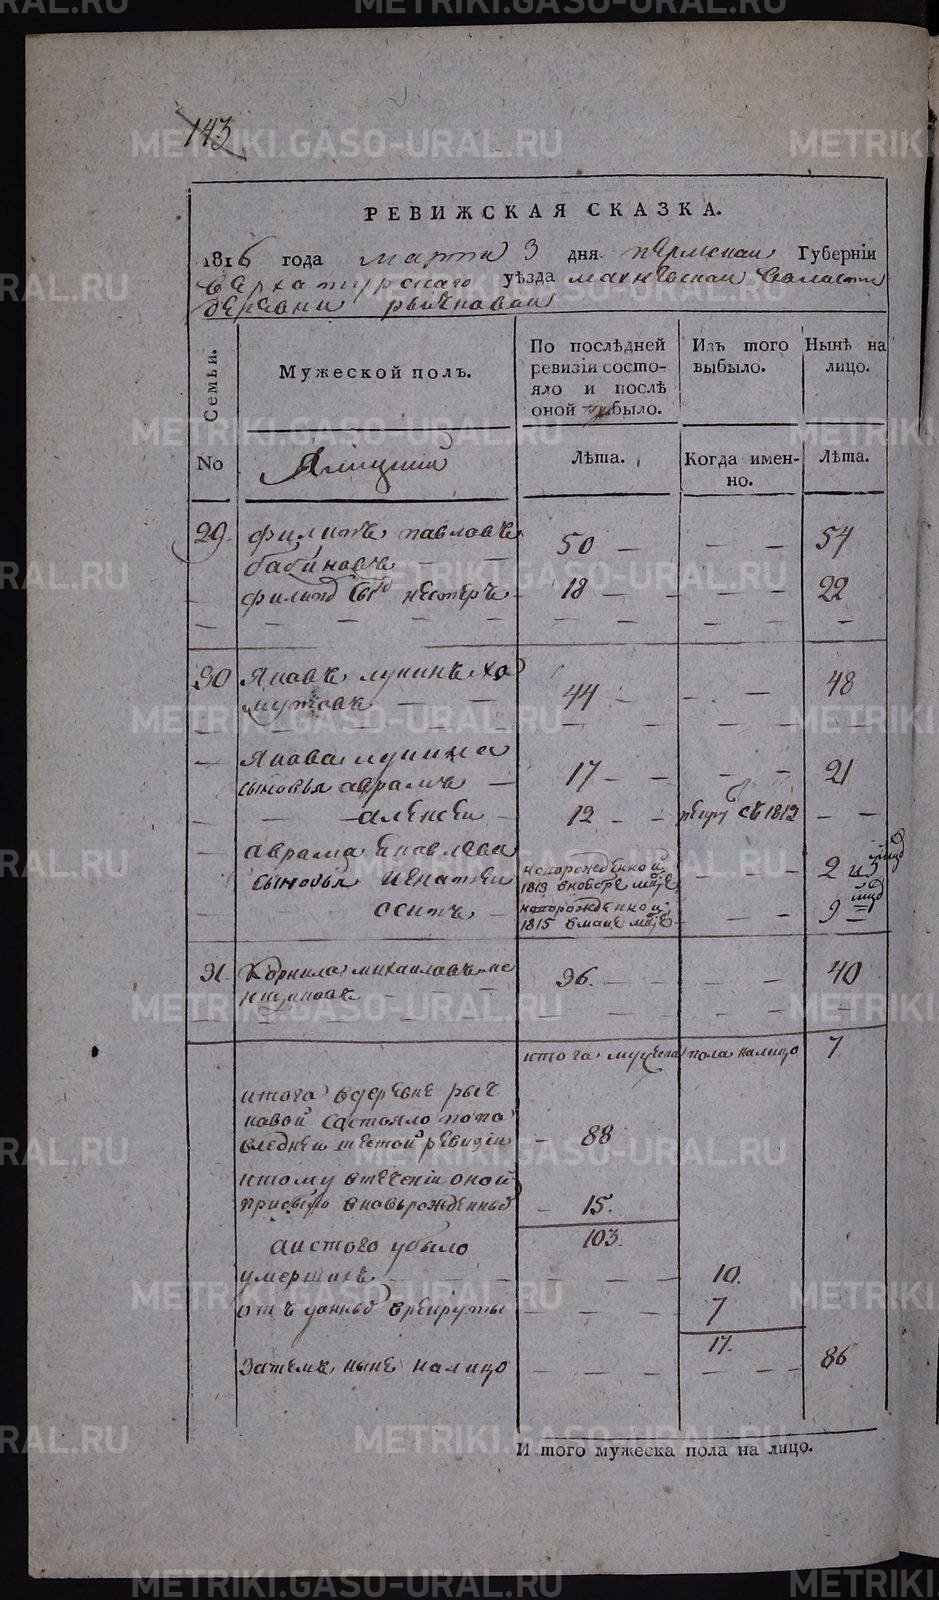 143
РЕВИЖСКАЯ СКАЗКА.
1816 года марта 3 дня пермскаи Губерніи
верхатурскаго уѣзда махневскаи валасти
деревни рычкавай
Семьи. Мужеской полъ. По послѣдней ревизіи состояло и послѣ оной прибыло. Изъ того выбыло. Нынѣ на лицо.
No Ямщики Лѣта. Когда именно. Лѣта.
29. филипъ павловъ
бабиновъ 50 — — — 54
филипа сынъ нестеръ 18 — — — 22
30 Яковъ лукинъ хо
мутовъ 44 — — — 48
Якова лукина
сыновья аврамъ — 17 — — — 21
— алексеи — 12 — рекру съ 1812 — —
аврама яковлева
сыновья игнатеи новорожденной
1813 вноябре мце — — — 2 и
осипъ — новорожденной
1815 вмаие мце — — 9
31. Корнила михаиловъ ме
ншиковъ 36. — — — 40
итого мужеска пола налицо 7
итого вдеревне рыч
кавой састояло попо
следнеи шестой ревизіи — 88
ктому втеченіи оной
прибыло вновьрожденныхъ — 15.
103.
аистого убыло
умершихъ — — — 10.
отъданныхъ врекруты — — — 7
17.
затемъ ныне налицо — — — 86
И того мужеска пола на лицо.
METRIKI.GASO-URAL.RU